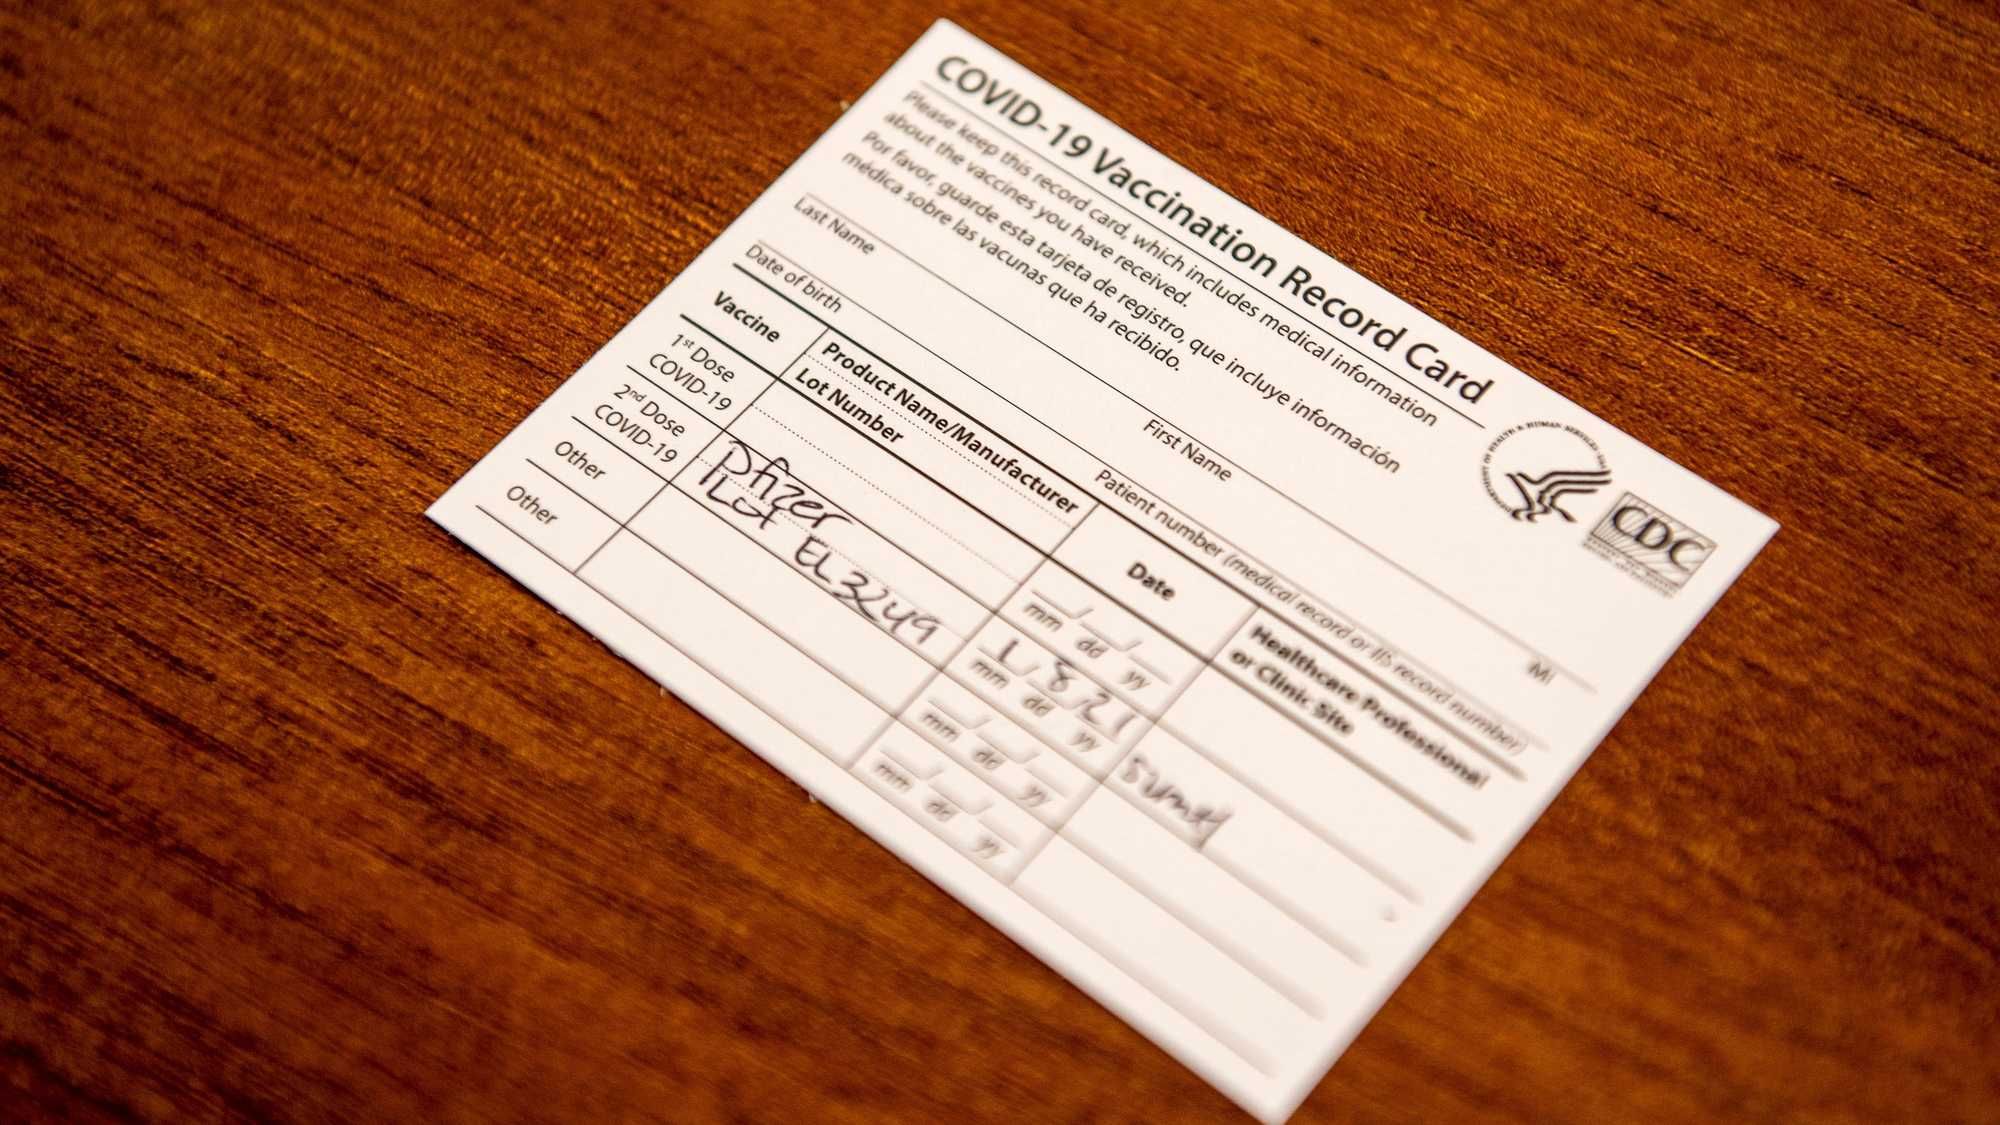 COVID-19 Vaccination Record Card
Please keep this record card, which includes medical information
about the vaccines you have received.
Por favor, guarde esta tarjeta de registro, que incluye información
médica sobre las vacunas que ha recibido.
Last Name First Name MI
Date of birth Patient number (medical record or IIS record number)
Vaccine Product Name/Manufacturer Date Healthcare Professional
Lot Number or Clinic Site
1st Dose
COVID-19 mm dd yy
2nd Dose Pfizer 1 8 21
COVID-19 LOT EL3249 mm dd yy
Other mm dd yy
Other mm dd yy
DEPARTMENT OF HEALTH & HUMAN SERVICES USA
CDC